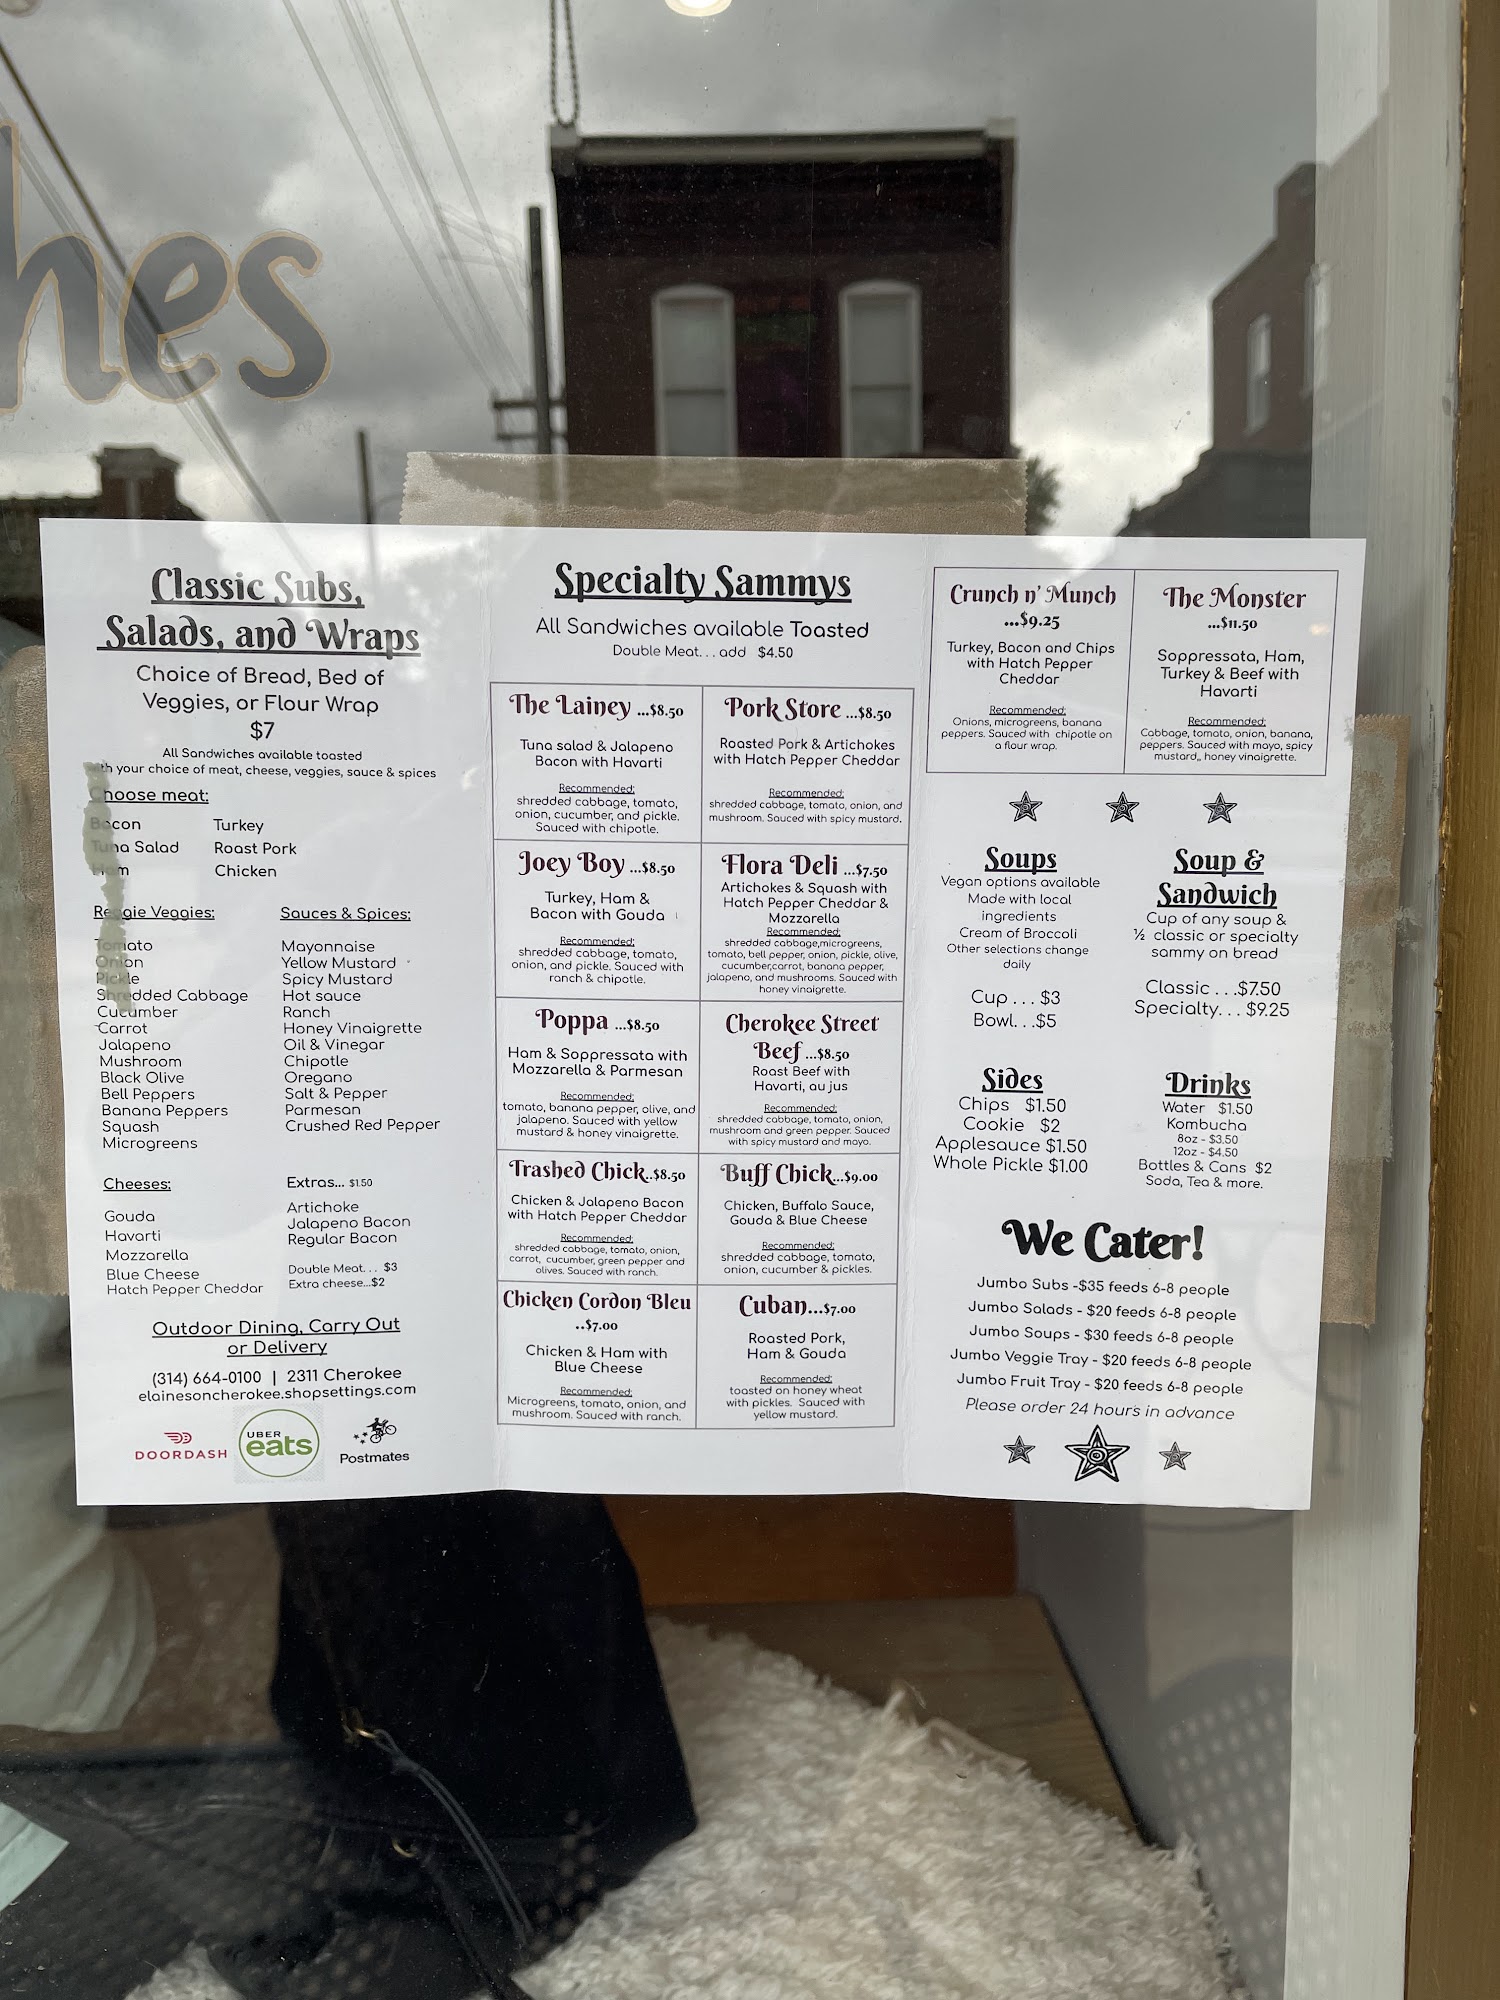 hes
Classic Subs,
Salads, and Wraps
Choice of Bread, Bed of
Veggies, or Flour Wrap
$7
All Sandwiches available toasted
your choice of meat, cheese, veggies, sauce & spices
hoose meat:
Bacon Turkey
Tuna Salad Roast Pork
Ham Chicken
Reggie Veggies:
Tomato
Onion
Pickle
Shredded Cabbage
Cucumber
Carrot
Jalapeno
Mushroom
Black Olive
Bell Peppers
Banana Peppers
Squash
Microgreens
Sauces & Spices:
Mayonnaise
Yellow Mustard
Spicy Mustard
Hot sauce
Ranch
Honey Vinaigrette
Oil & Vinegar
Chipotle
Oregano
Salt & Pepper
Parmesan
Crushed Red Pepper
Cheeses:
Gouda
Havarti
Mozzarella
Blue Cheese
Hatch Pepper Cheddar
Extras... $1.50
Artichoke
Jalapeno Bacon
Regular Bacon
Double Meat... $3
Extra cheese...$2
Outdoor Dining, Carry Out
or Delivery
(314) 664-0100 | 2311 Cherokee
elainesoncherokee.shopsettings.com
DOORDASH
UBER
eats
Postmates
Specialty Sammys
All Sandwiches available Toasted
Double Meat...add $4.50
The Lainey ...$8.50
Tuna salad & Jalapeno
Bacon with Havarti
Recommended:
shredded cabbage, tomato,
onion, cucumber, and pickle.
Sauced with chipotle.
Pork Store ...$8.50
Roasted Pork & Artichokes
with Hatch Pepper Cheddar
Recommended:
shredded cabbage, tomato, onion, and
mushroom. Sauced with spicy mustard.
Joey Boy ...$8.50
Turkey, Ham &
Bacon with Gouda
Recommended:
shredded cabbage, tomato,
onion, and pickle. Sauced with
ranch & chipotle.
Flora Deli ...$7.50
Artichokes & Squash with
Hatch Pepper Cheddar &
Mozzarella
Recommended:
shredded cabbage,microgreens,
tomato, bell pepper, onion, pickle, olive,
cucumber,carrot, banana pepper,
jalapeno, and mushrooms. Sauced with
honey vinaigrette.
Poppa ...$8.50
Ham & Soppressata with
Mozzarella & Parmesan
Recommended:
tomato, banana pepper, olive, and
jalapeno. Sauced with yellow
mustard & honey vinaigrette.
Cherokee Street
Beef ...$8.50
Roast Beef with
Havarti, au jus
Recommended:
shredded cabbage, tomato, onion,
mushroom and green pepper. Sauced
with spicy mustard and mayo.
Trashed Chick..$8.50
Chicken & Jalapeno Bacon
with Hatch Pepper Cheddar
Recommended:
shredded cabbage, tomato, onion,
carrot, cucumber, green pepper and
olives. Sauced with ranch.
Buff Chick...$9.00
Chicken, Buffalo Sauce,
Gouda & Blue Cheese
Recommended:
shredded cabbage, tomato,
onion, cucumber & pickles.
Chicken Cordon Bleu
..$7.00
Chicken & Ham with
Blue Cheese
Recommended:
Microgreens, tomato, onion, and
mushroom. Sauced with ranch.
Cuban...$7.00
Roasted Pork,
Ham & Gouda
Recommended:
toasted on honey wheat
with pickles. Sauced with
yellow mustard.
Crunch n' Munch
...$9.25
Turkey, Bacon and Chips
with Hatch Pepper
Cheddar
Recommended:
Onions, microgreens, banana
peppers. Sauced with chipotle on
a flour wrap.
The Monster
...$11.50
Soppressata, Ham,
Turkey & Beef with
Havarti
Recommended:
Cabbage, tomato, onion, banana,
peppers. Sauced with mayo, spicy
mustard,, honey vinaigrette.
Soups
Vegan options available
Made with local
ingredients
Cream of Broccoli
Other selections change
daily
Cup ... $3
Bowl...$5
Soup &
Sandwich
Cup of any soup &
½ classic or specialty
sammy on bread
Classic ...$7.50
Specialty... $9.25
Sides
Chips $1.50
Cookie $2
Applesauce $1.50
Whole Pickle $1.00
Drinks
Water $1.50
Kombucha
8oz - $3.50
12oz - $4.50
Bottles & Cans $2
Soda, Tea & more.
We Cater!
Jumbo Subs -$35 feeds 6-8 people
Jumbo Salads - $20 feeds 6-8 people
Jumbo Soups - $30 feeds 6-8 people
Jumbo Veggie Tray - $20 feeds 6-8 people
Jumbo Fruit Tray - $20 feeds 6-8 people
Please order 24 hours in advance